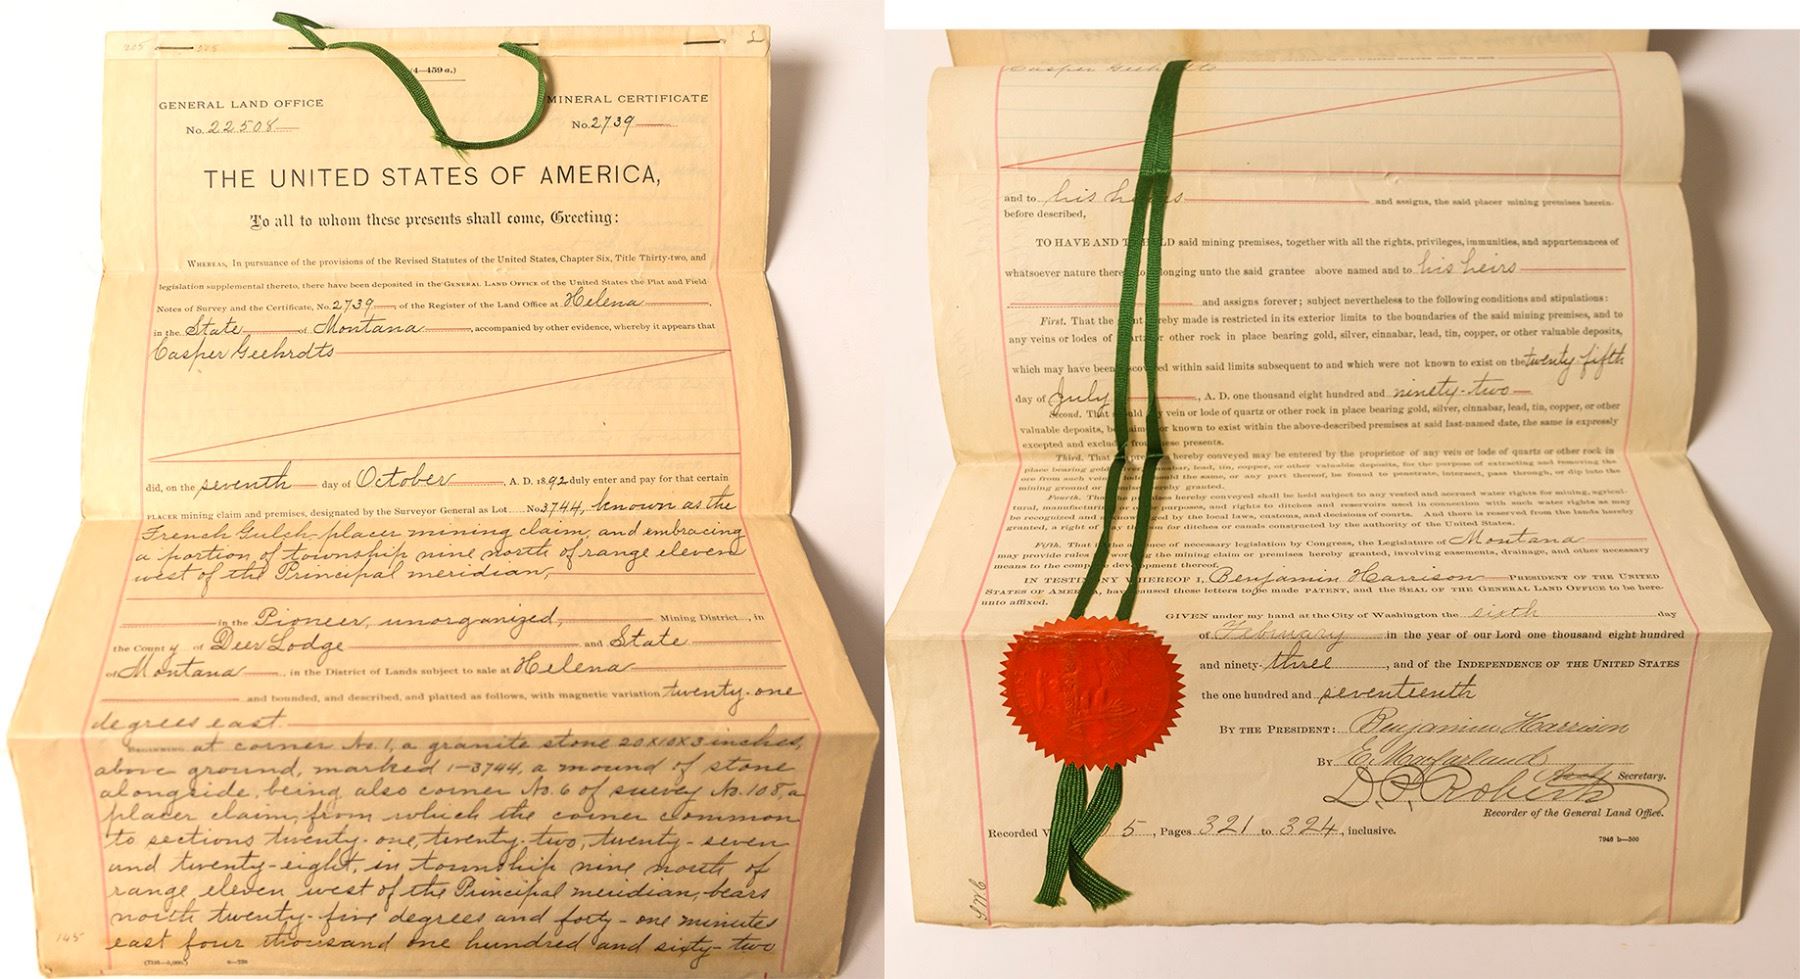 205
205
L
(4—459 a.)
GENERAL LAND OFFICE
No. 22508
MINERAL CERTIFICATE
No. 2739
THE UNITED STATES OF AMERICA,
To all to whom these presents shall come, Greeting:
WHEREAS, In pursuance of the provisions of the Revised Statutes of the United States, Chapter Six, Title Thirty-two, and
legislation supplemental thereto, there have been deposited in the GENERAL LAND OFFICE of the United States the Plat and Field
Notes of Survey and the Certificate, No. 2739, of the Register of the Land Office at Helena,
in the State of Montana, accompanied by other evidence, whereby it appears that
Casper Geehrdts
did, on the seventh day of October, A. D. 1892 duly enter and pay for that certain
PLACER mining claim and premises, designated by the Surveyor General as Lot No. 3744, known as the
French Gulch placer mining claim, and embracing
a portion of township nine north of range eleven
west of the Principal meridian,
in the Pioneer, unorganized, Mining District, in
the County of Deer Lodge and State
of Montana, in the District of Lands subject to sale at Helena
and bounded, and described, and platted as follows, with magnetic variation twenty-one
degrees east.
BEGINNING at corner No. 1, a granite stone 20x10x3 inches,
above ground, marked 1-3744, a mound of stone
alongside, being also corner No. 6 of survey No. 108, a
placer claim, from which the corner common
to sections twenty-one, twenty-two, twenty-seven
and twenty-eight, in township nine north of
range eleven west of the Principal meridian, bears
north twenty-five degrees and forty-one minutes
east four thousand one hundred and sixty-two
145
Casper Geehrdts
and to his heirs and assigns, the said placer mining premises herein-
before described,
TO HAVE AND TO HOLD said mining premises, together with all the rights, privileges, immunities, and appurtenances of
whatsoever nature thereto belonging unto the said grantee above named and to his heirs
and assigns forever; subject nevertheless to the following conditions and stipulations:
First. That the hereby made is restricted in its exterior limits to the boundaries of the said mining premises, and to
any veins or lodes of quartz or other rock in place bearing gold, silver, cinnabar, lead, tin, copper, or other valuable deposits,
which may have been discovered within said limits subsequent to and which were not known to exist on the twenty-fifth
day of July, A. D. one thousand eight hundred and ninety-two
Second. That should any vein or lode of quartz or other rock in place bearing gold, silver, cinnabar, lead, tin, copper, or other
valuable deposits, be claimed or known to exist within the above-described premises at said last-named date, the same is expressly
excepted and excluded from these presents.
Third. That the premises hereby conveyed may be entered by the proprietor of any vein or lode of quartz or other rock in
place bearing gold, silver, cinnabar, lead, tin, copper, or other valuable deposits, for the purpose of extracting and removing the
ore from such vein or lode, should the same, or any part thereof, be found to penetrate, intersect, pass through, or dip into the
mining ground or premises hereby granted.
Fourth. That the premises hereby conveyed shall be held subject to any vested and accrued water rights for mining, agricul-
tural, manufacturing, or other purposes, and rights to ditches and reservoirs used in connection with such water rights as may
be recognized and acknowledged by the local laws, customs, and decisions of courts. And there is reserved from the lands hereby
granted, a right of way thereon for ditches or canals constructed by the authority of the United States.
Fifth. That in the absence of necessary legislation by Congress, the Legislature of Montana
may provide rules for working the mining claim or premises hereby granted, involving easements, drainage, and other necessary
means to the complete development thereof.
IN TESTIMONY WHEREOF I, Benjamin Harrison PRESIDENT OF THE UNITED
STATES OF AMERICA, have caused these letters to be made PATENT, and the SEAL OF THE GENERAL LAND OFFICE to be here-
unto affixed.
GIVEN under my hand at the City of Washington the sixth day
of February in the year of our Lord one thousand eight hundred
and ninety-three, and of the INDEPENDENCE OF THE UNITED STATES
the one hundred and seventeenth
BY THE PRESIDENT: Benjamin Harrison
By E. Macfarland
Secretary.
D. P. Roberts
Recorder of the General Land Office.
Recorded V 5, Pages 321 to 324, inclusive.
7946 b—500